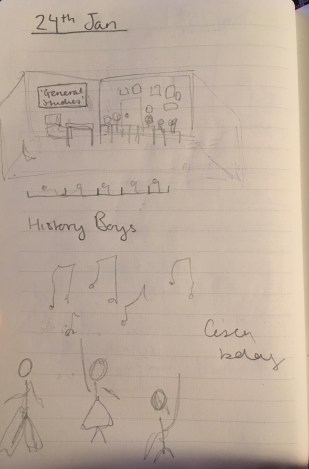 24th Jan
'General
Studies'
History Boys
bday